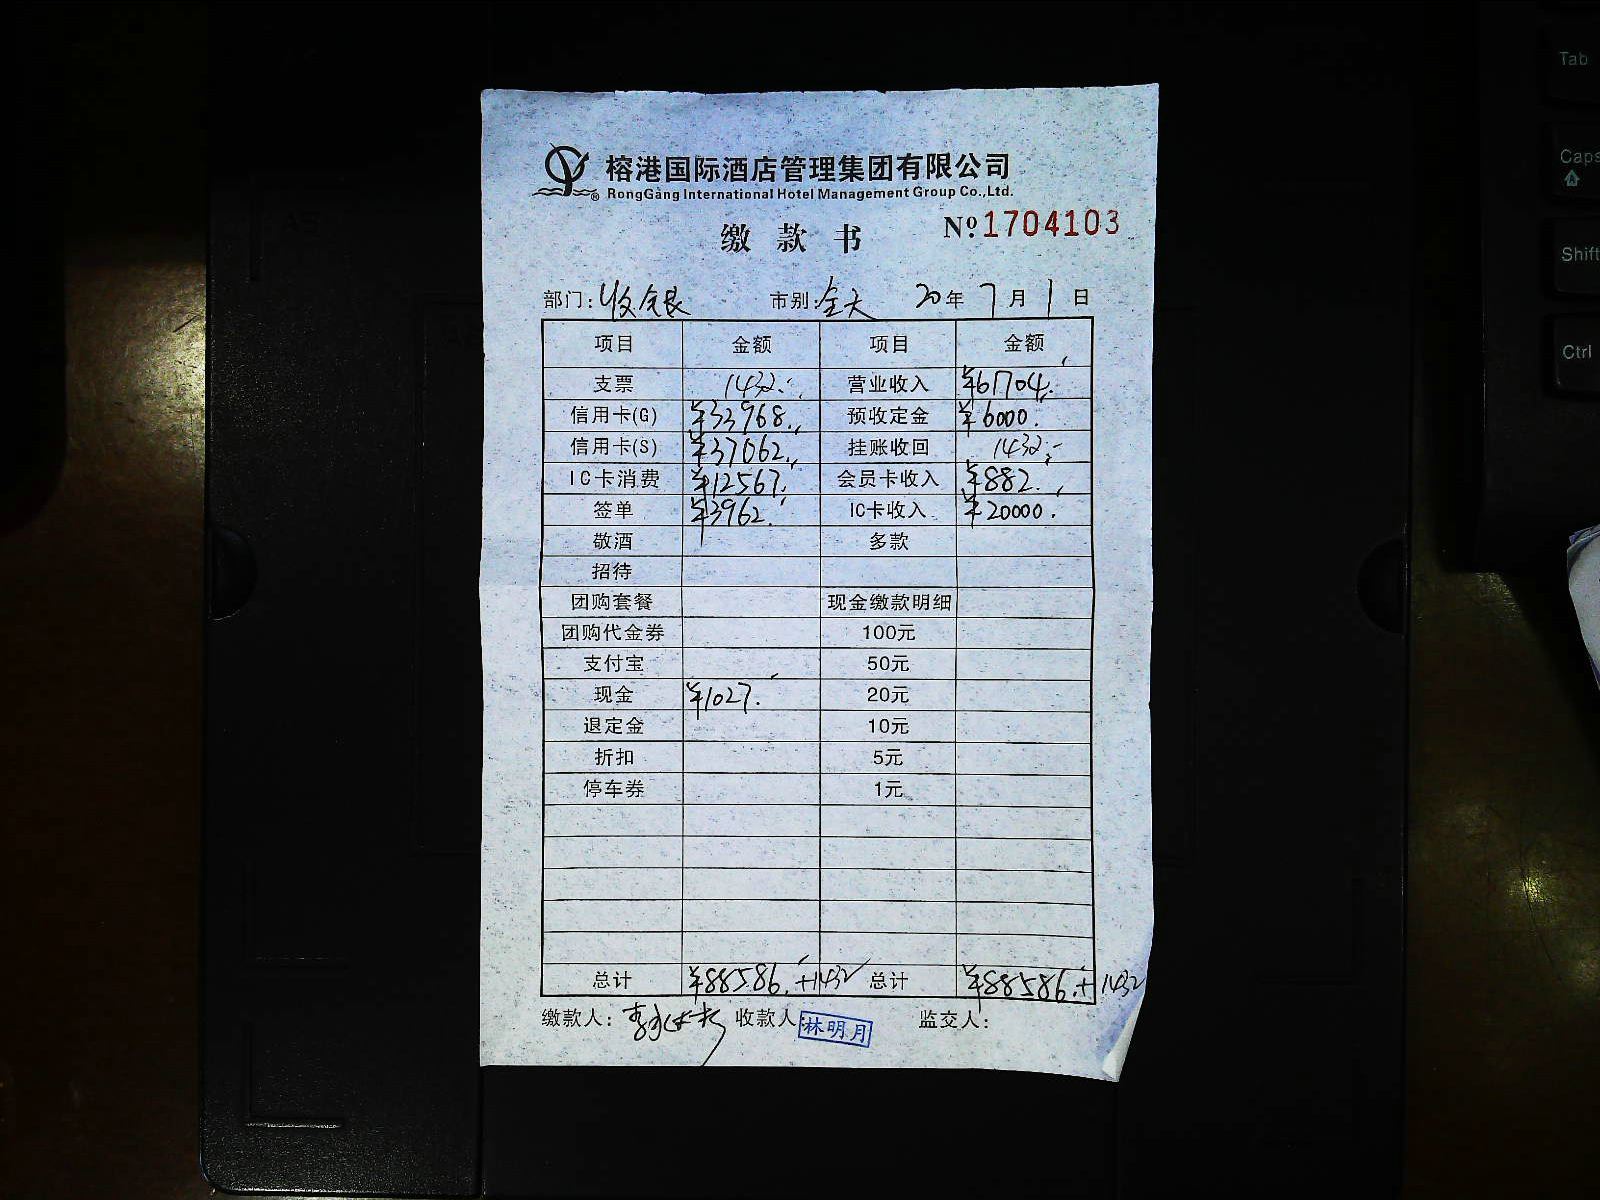 榕港国际酒店管理集团有限公司
®RongGang International Hotel Management Group Co.,Ltd.
缴款书 Nº1704103
部门:收银 市别:全天 20年7月1日
项目 金额 项目 金额
支票 1432.- 营业收入 ¥61704.-
信用卡(G) ¥33968.- 预收定金 ¥6000.
信用卡(S) ¥37062.- 挂账收回 1432.-
IC卡消费 ¥12567.- 会员卡收入 ¥882.-
签单 ¥3962.- IC卡收入 ¥20000.
敬酒 多款
招待
团购套餐 现金缴款明细
团购代金券 100元
支付宝 50元
现金 ¥1027.- 20元
退定金 10元
折扣 5元
停车券 1元
总计 ¥88586.+1432 总计 ¥88586.+1432
缴款人: 收款人:林明月 监交人:
Tab
Caps
Shift
Ctrl